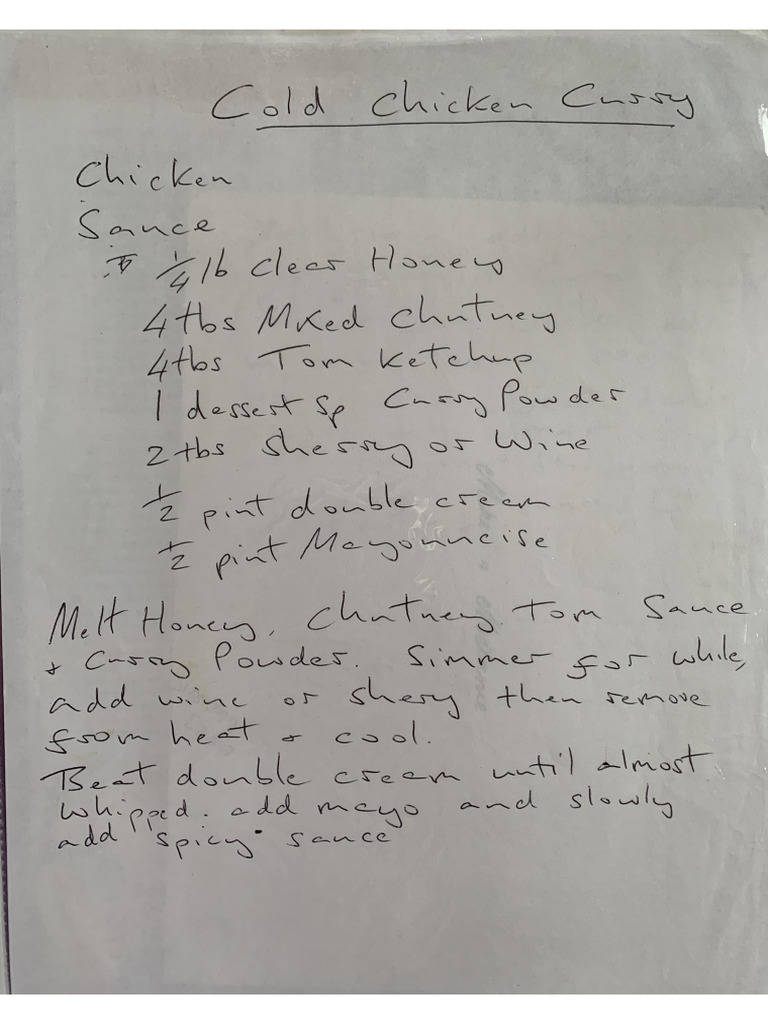 Cold Chicken Curry
Chicken
Sauce
1/4 lb Clear Honey
4 tbs Mixed Chutney
4 tbs Tom Ketchup
1 dessert Sp Curry Powder
2 tbs Sherry or Wine
1/2 pint double cream
1/2 pint Mayonnaise
Melt Honey, Chutney Tom Sauce
+ Curry Powder. Simmer for while,
add wine or shery then remove
from heat + cool.
Beat double cream until almost
whipped. add mayo and slowly
add "spicy" sauce